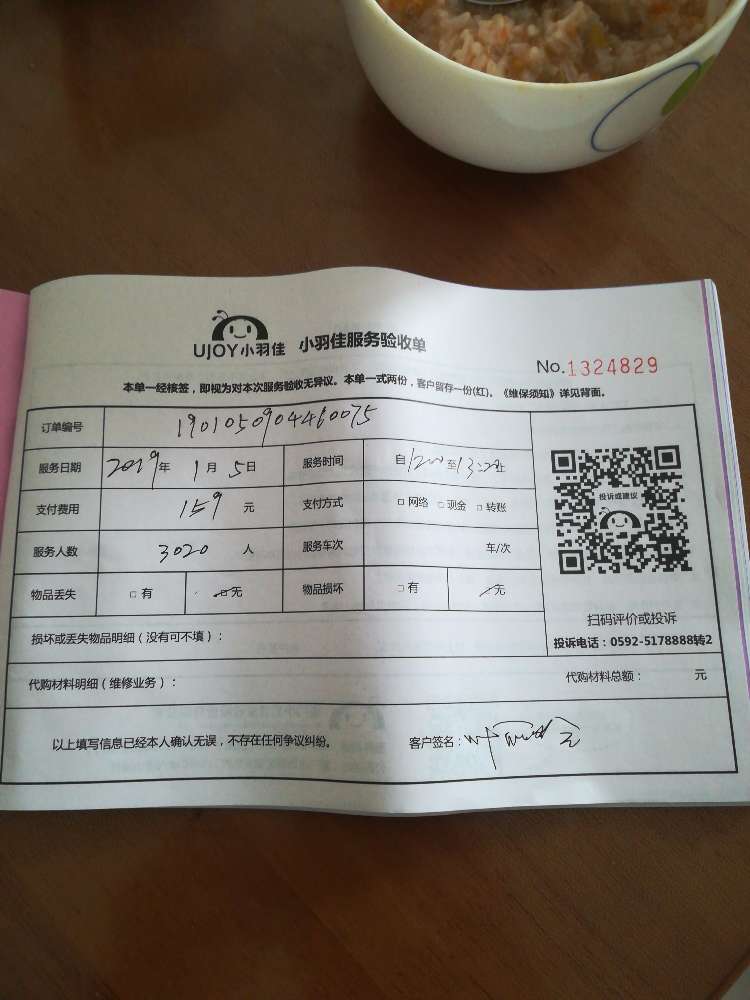 UJOY小羽佳 小羽佳服务验收单
No.1324829
本单一经核签，即视为对本次服务验收无异议。本单一式两份，客户留存一份(红)。《维保须知》详见背面。
订单编号 1901050904460075
服务日期 2019年 1月 5日 服务时间 自 至13:20止
支付费用 159 元 支付方式 □ 网络 □ 现金 □ 转账
服务人数 3020 人 服务车次 车/次
物品丢失 □ 有 □ 无 物品损坏 □ 有 无
投诉或建议
扫码评价或投诉
投诉电话：0592-5178888转2
损坏或丢失物品明细（没有可不填）：
代购材料明细（维修业务）： 代购材料总额： 元
以上填写信息已经本人确认无误，不存在任何争议纠纷。 客户签名：